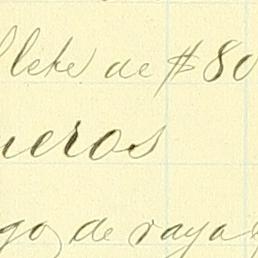 flete de $80
neros
go de raya